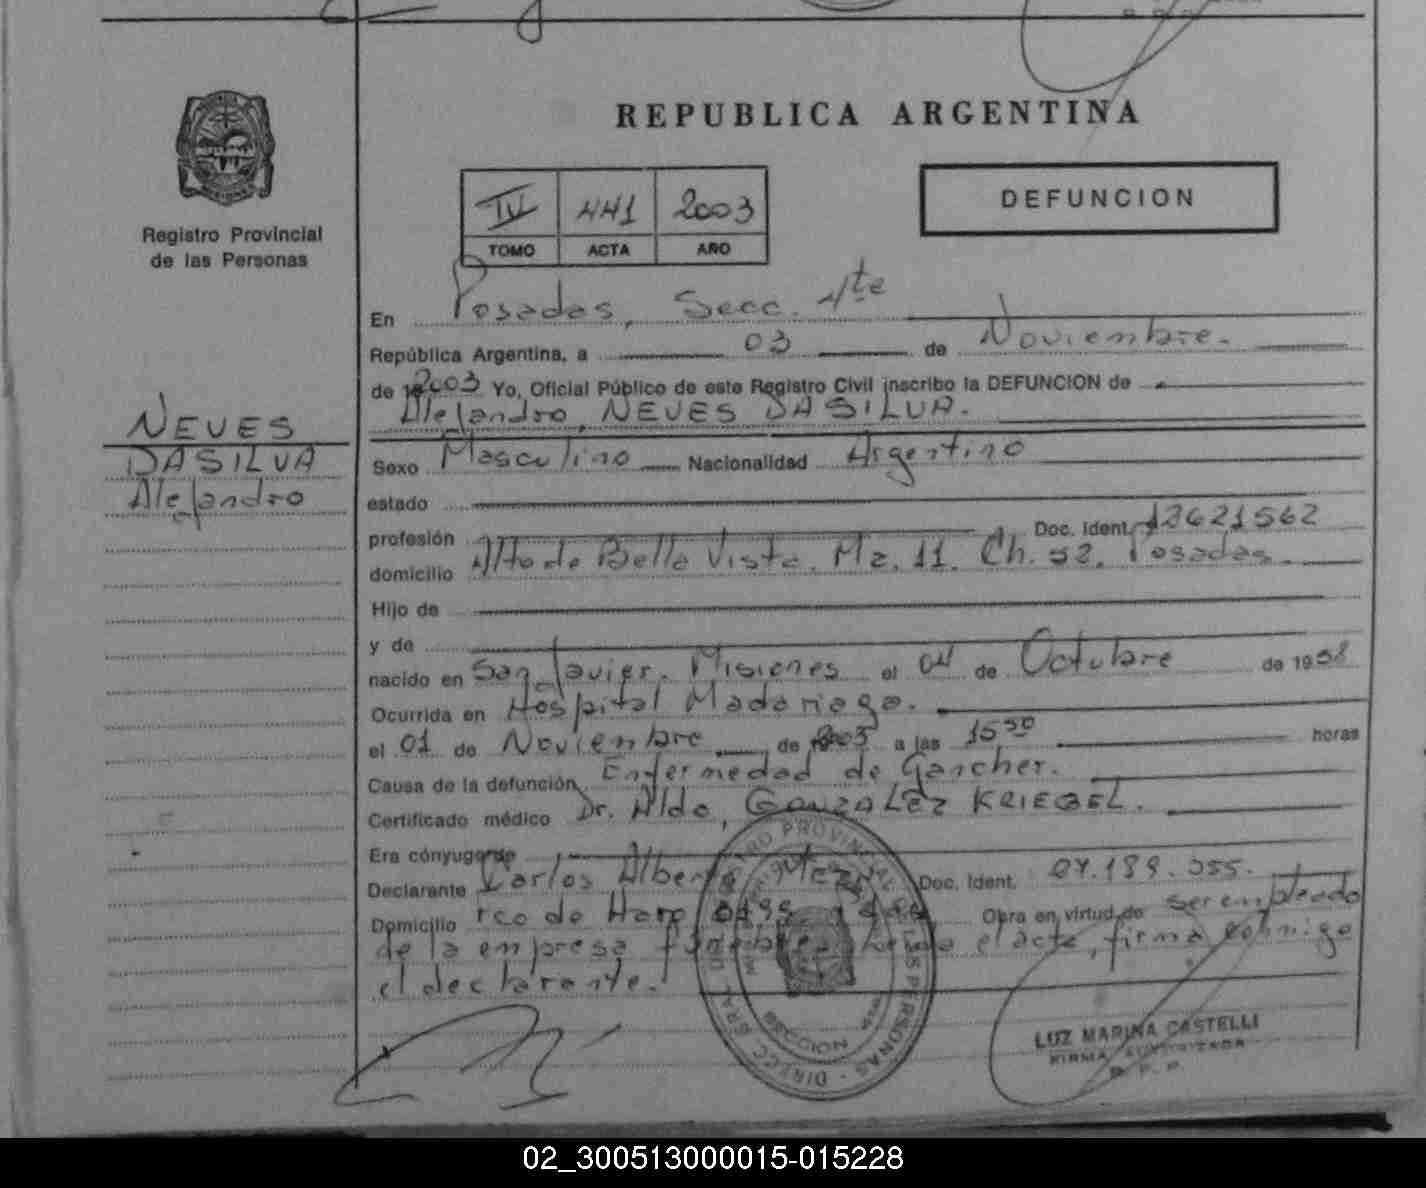 REPUBLICA ARGENTINA
Registro Provincial
de las Personas
IV 441 2003
TOMO ACTA AÑO
DEFUNCION
En Posadas, Secc. 4te
República Argentina, a 03 de Noviembre.
de 2003 Yo, Oficial Público de este Registro Civil inscribo la DEFUNCION de
Alejandro, NEVES DASILVA.
NEVES
DASILVA
Alejandro
Sexo Masculino Nacionalidad Argentino
estado
profesión Doc. Ident. 12621562
domicilio Alto de Bella Vista. Mz. 11. Ch. 52. Posadas.
Hijo de
y de
nacido en San Javier. Misiones el 04 de Octubre de 1958
Ocurrida en Hospital Madariaga.
el 01 de Noviembre de 2003 a las 15 30 horas
Causa de la defunción Enfermedad de Gancher.
Certificado médico Dr. Aldo, GONZALEZ KRIEGEL.
Era cónyuge de
Declarante Carlos Alberto Doc. Ident. 07.189.055.
Domicilio rco de Haro Obra en virtud de ser empleado
de la empresa el acta, firma conmigo
el declarante.
LUZ MARINA CASTELLI
FIRMA AUTORIZADA
02_300513000015-015228